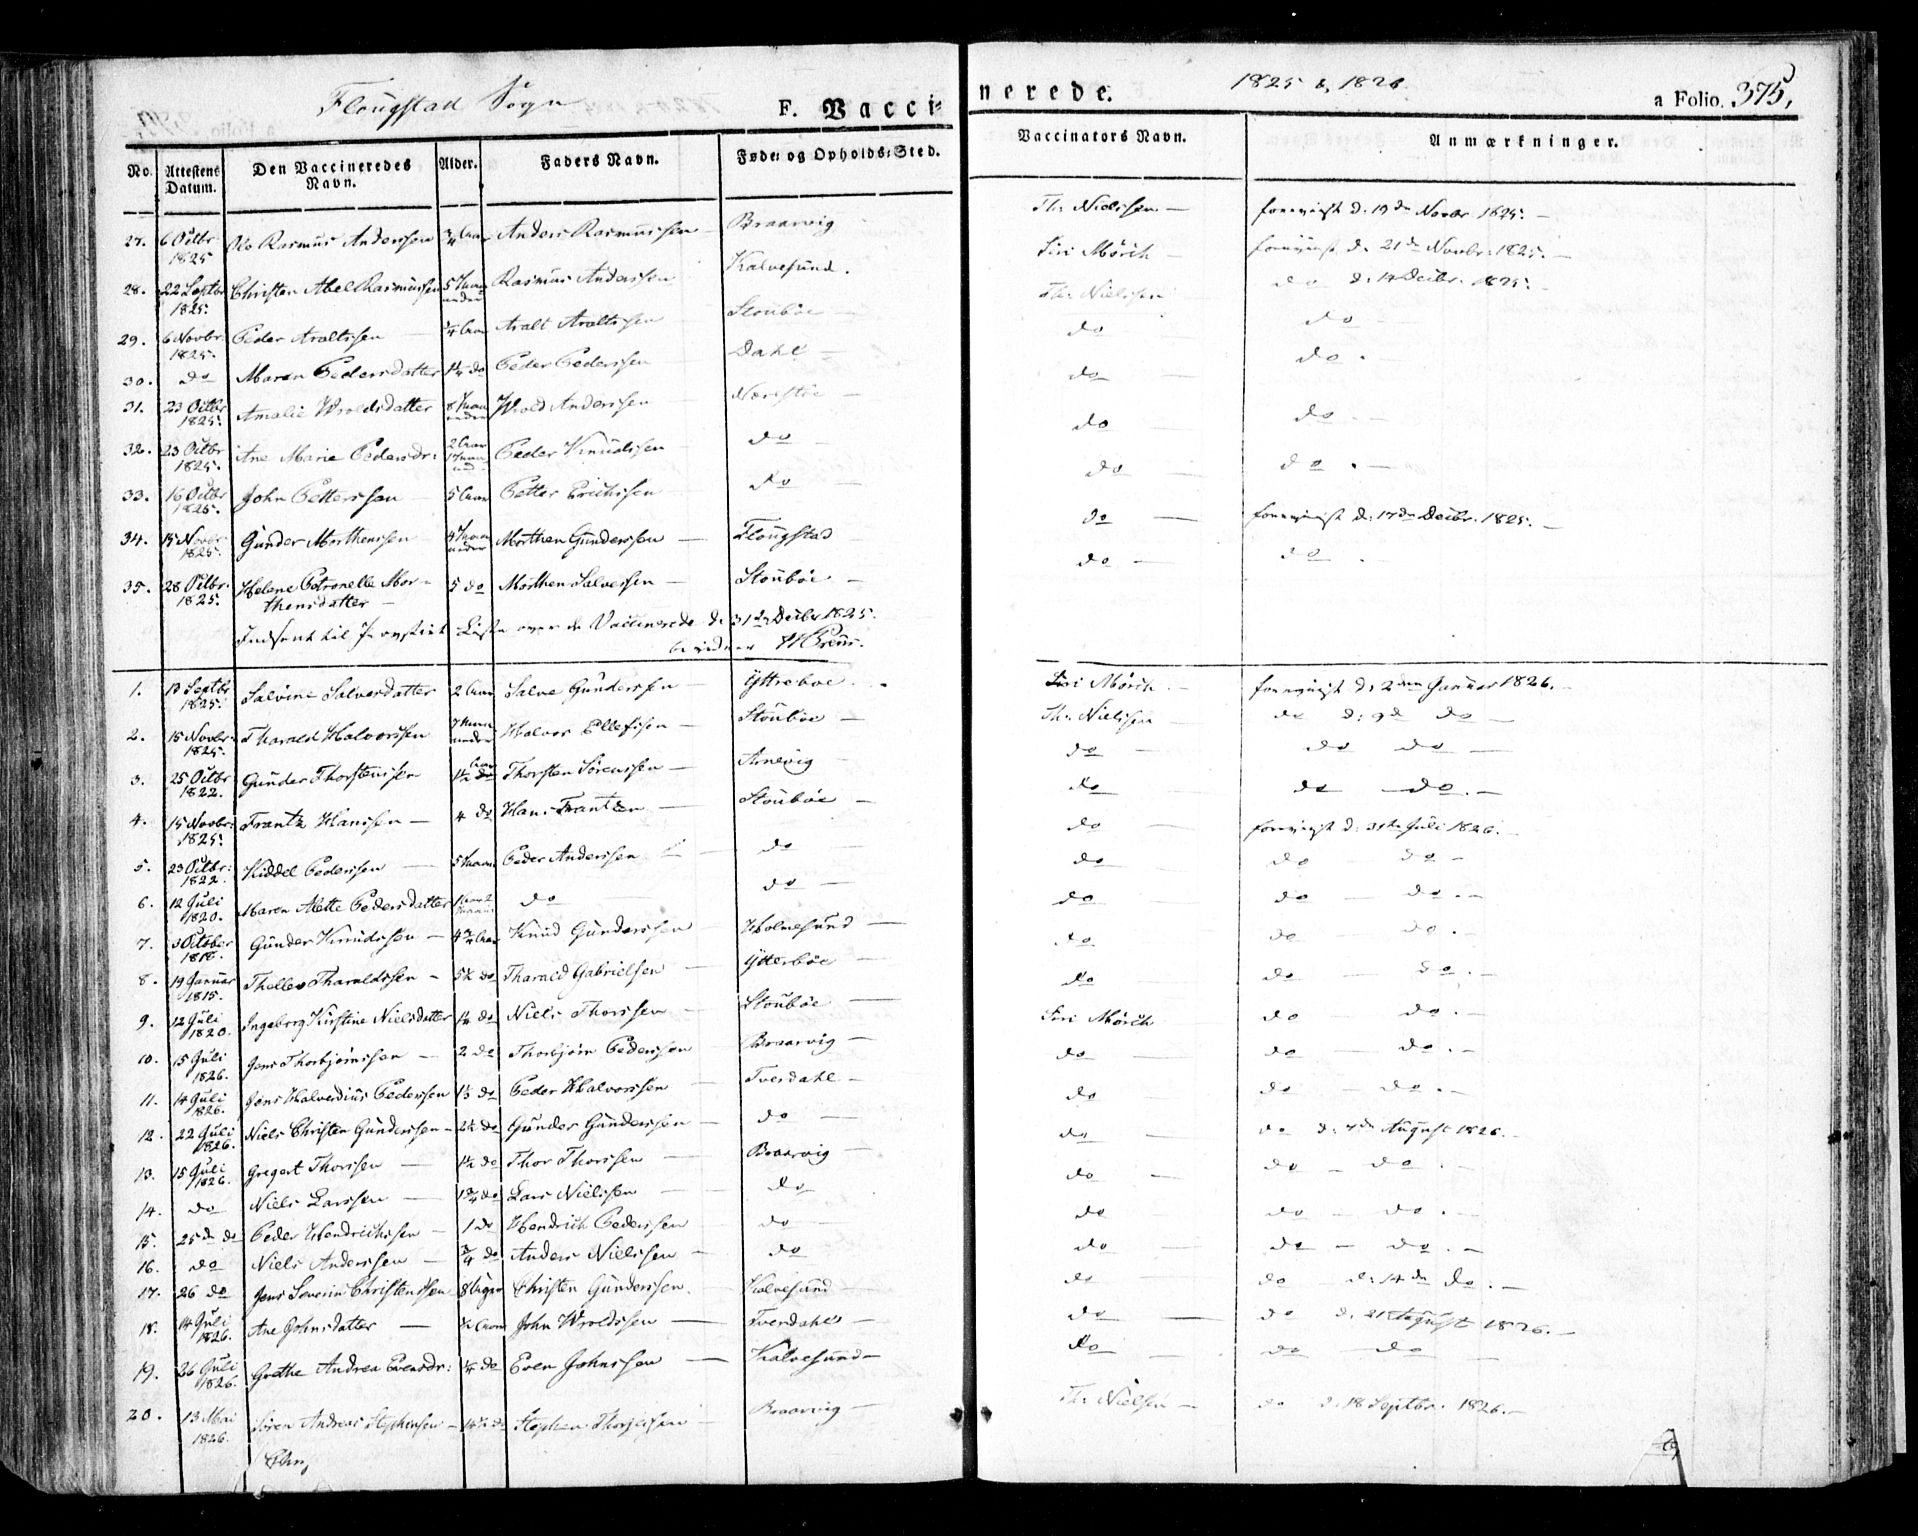 Flougstad Sogn F. Vaccinerede. 1825 & 1826 a Folio. 375,
No. Attestens Datum. Den Vaccineredes Navn. Alder. Faders Navn. Føde- og Opholds-Sted. Vaccinators Navn. Anmærkninger.
27. 6 Octbr 1825 Ole Rasmus Anderssen 3/4 Aar Anders Rasmussen Braarvig Th: Nielssen foreviist d: 19de Novbr 1825.
28. 22 Septbr 1825. Christen Abel Rasmussen 5 Rasmus Anderssen Kalvesund. Siri Mörch foreviist d: 21de Novbr: 1825.
29. 6 Novbr: 1825. Peder Araltssen 1/4 Aar Aralt Araltssen Stoubøe Th: Nielssen do d: 14 Decbr. 1825.
30. do Maren Pedersdatter 1 1/4 do Peder Pederssen Dahl do do
31. 23 Octbr 1825. Amalie Wroldsdatter 8 Wrold Anderssen Narestøe do do
32. 23 Octbr 1825. Ane Marie Pedersdr: 2 Aar Peder Knudssen do do do
33. 16 Octbr 1825. John Petterssen 5 Aar Petter Erichssen do do do
34. 15 Novbr 1825. Gunder Morthenssen 4 Morthen Gunderssen Flougstad do foreviist d: 17de Decbr. 1825.
35. 28 Octbr: 1825. Helene Petronelle Morthensdatter 5 do Morthen Salvessen Stoubøe do do
Indsent til Provstiet Liste over de Vaccinerede d: 31de Decbr 1825.
bevidner
1. 13 Septbr 1825. Salvine Salvesdatter 2 Aar Salve Gunderssen Yttreboe Siri Mörch foreviist d: 2den Januar 1826.
2. 15 Novbr: 1825. Tharald Halvorssen 7 Halvor Ellefssen Stoubøe Th: Nielssen do d: 9d do
3. 25 Octbr 1822. Gunder Thorstenssen 1 1/2 Aar Thorsten Sörenssen Arnevig do do do
4. 15 Novbr: 1825. Frantz Hanssen 4 do Hans Frantzen Stoubøe do do do
5. 23 Octbr: 1822. Kiddel Pederssen 5 Peder Anderssen do do foreviist d: 31te Juli 1826.
6. 12 Juli 1820. Maren Mette Pedersdatter do do do do do
7. 3 October 1818. Gunder Knudssen 4 3/4 Aar Knud Gunderssen Holmesund do do do
8. 19 Januar 1815. Thellev Tharaldssen 5 1/2 do Tharald Gabrielsen Ytterbøe do do do
9. 12 Juli 1820. Ingeborg Kirstine Nielsdatter 1 1/4 do Niels Thorssen Stoubøe do do do
10. 15 Juli 1826. Jens Thorbjørnssen 2 do Thorbjörn Pederssen Braarvig Siri Mörch do do
11. 14 Juli 1826. Jens Halverdius Pederssen 1 1/2 do Peder Halvorssen Tverdahl do do do
12. 22 Juli 1826. Niels Christen Gunderssen 2 1/2 do Gunder Gunderssen do do do do
13. 15 Juli 1826. Gregert Thorssen 1 1/2 do Thor Thorssen Braarvig do do d: 7de August 1826.
14. do Niels Larssen 1 3/4 do Lars Nielssen do do do do
15. 25de do Peder Hendrichssen 1 do Hendrich Pederssen do do do do
16. do Niels Anderssen 3/4 do Anders Nielssen do do do do
17. 26 do Jens Severin Christenssen 8 Uger Christen Gunderssen Kalvesund do do d: 14de do
18. 14 Juli 1826. Ane Johnsdatter 1/2 Aar John Wroldssen Tverdahl do do d: 21 August 1826.
19. 26 Juli 1826. Grethe Andrea Evensdr: 1/4 do Even Johnssen Kalvesund do do do
20. 13 Mai 1826. Sören Andreas Stephensen 14 1/2 do Stephen Braarvig Th: Nielsen do d: 18 Septbr: 1826.